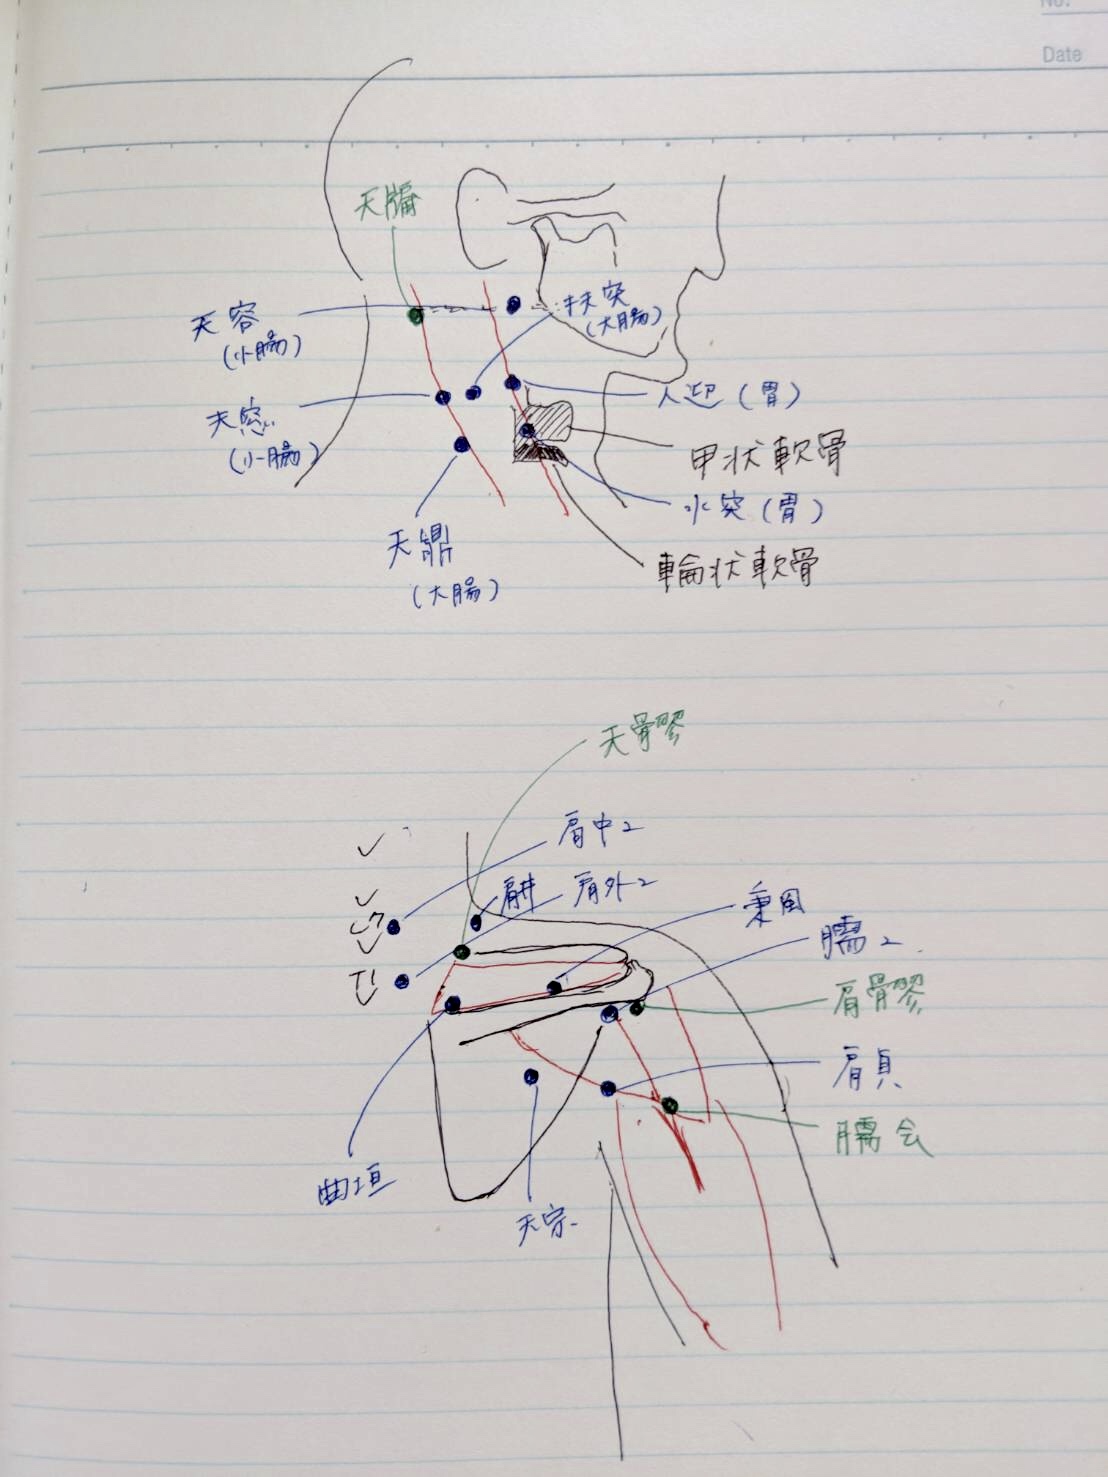 No.
Date
天牖
天容
(小腸)
扶突
(大腸)
天窓
(小腸)
人迎(胃)
甲状軟骨
水突(胃)
天鼎
(大腸)
輪状軟骨
天髎
肩中2
肩井
肩外2
秉風
臑2
肩髎
肩貞
臑会
曲垣
天宗